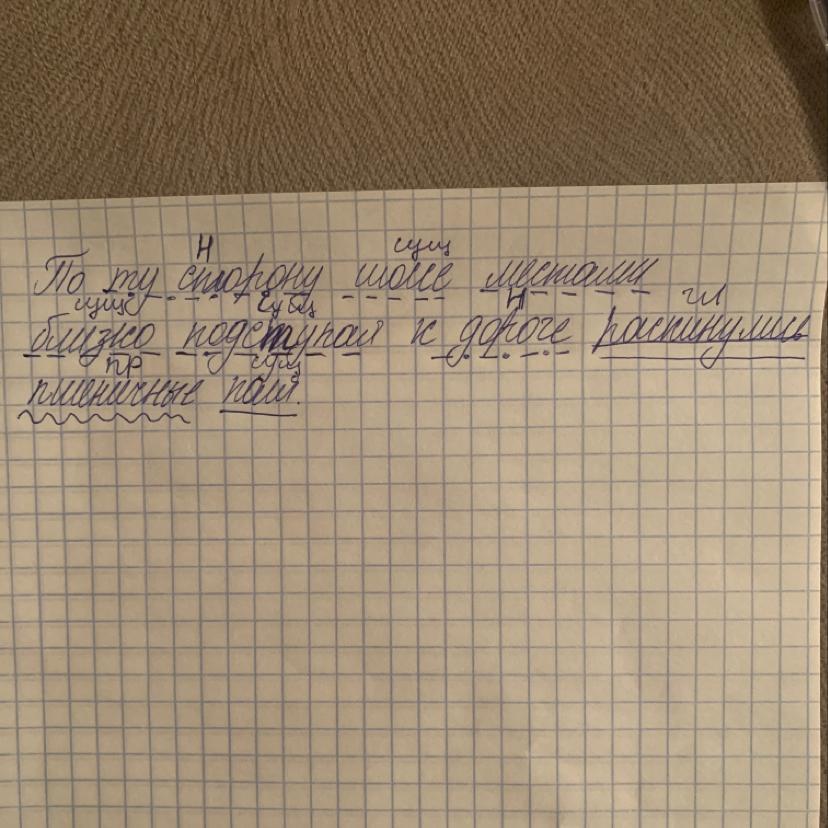 Н сущ
По ту сторону шоссе местами
сущ сущ Н гл
близко подступая к дороге раскинулись
пр сущ
пшеничные поля.